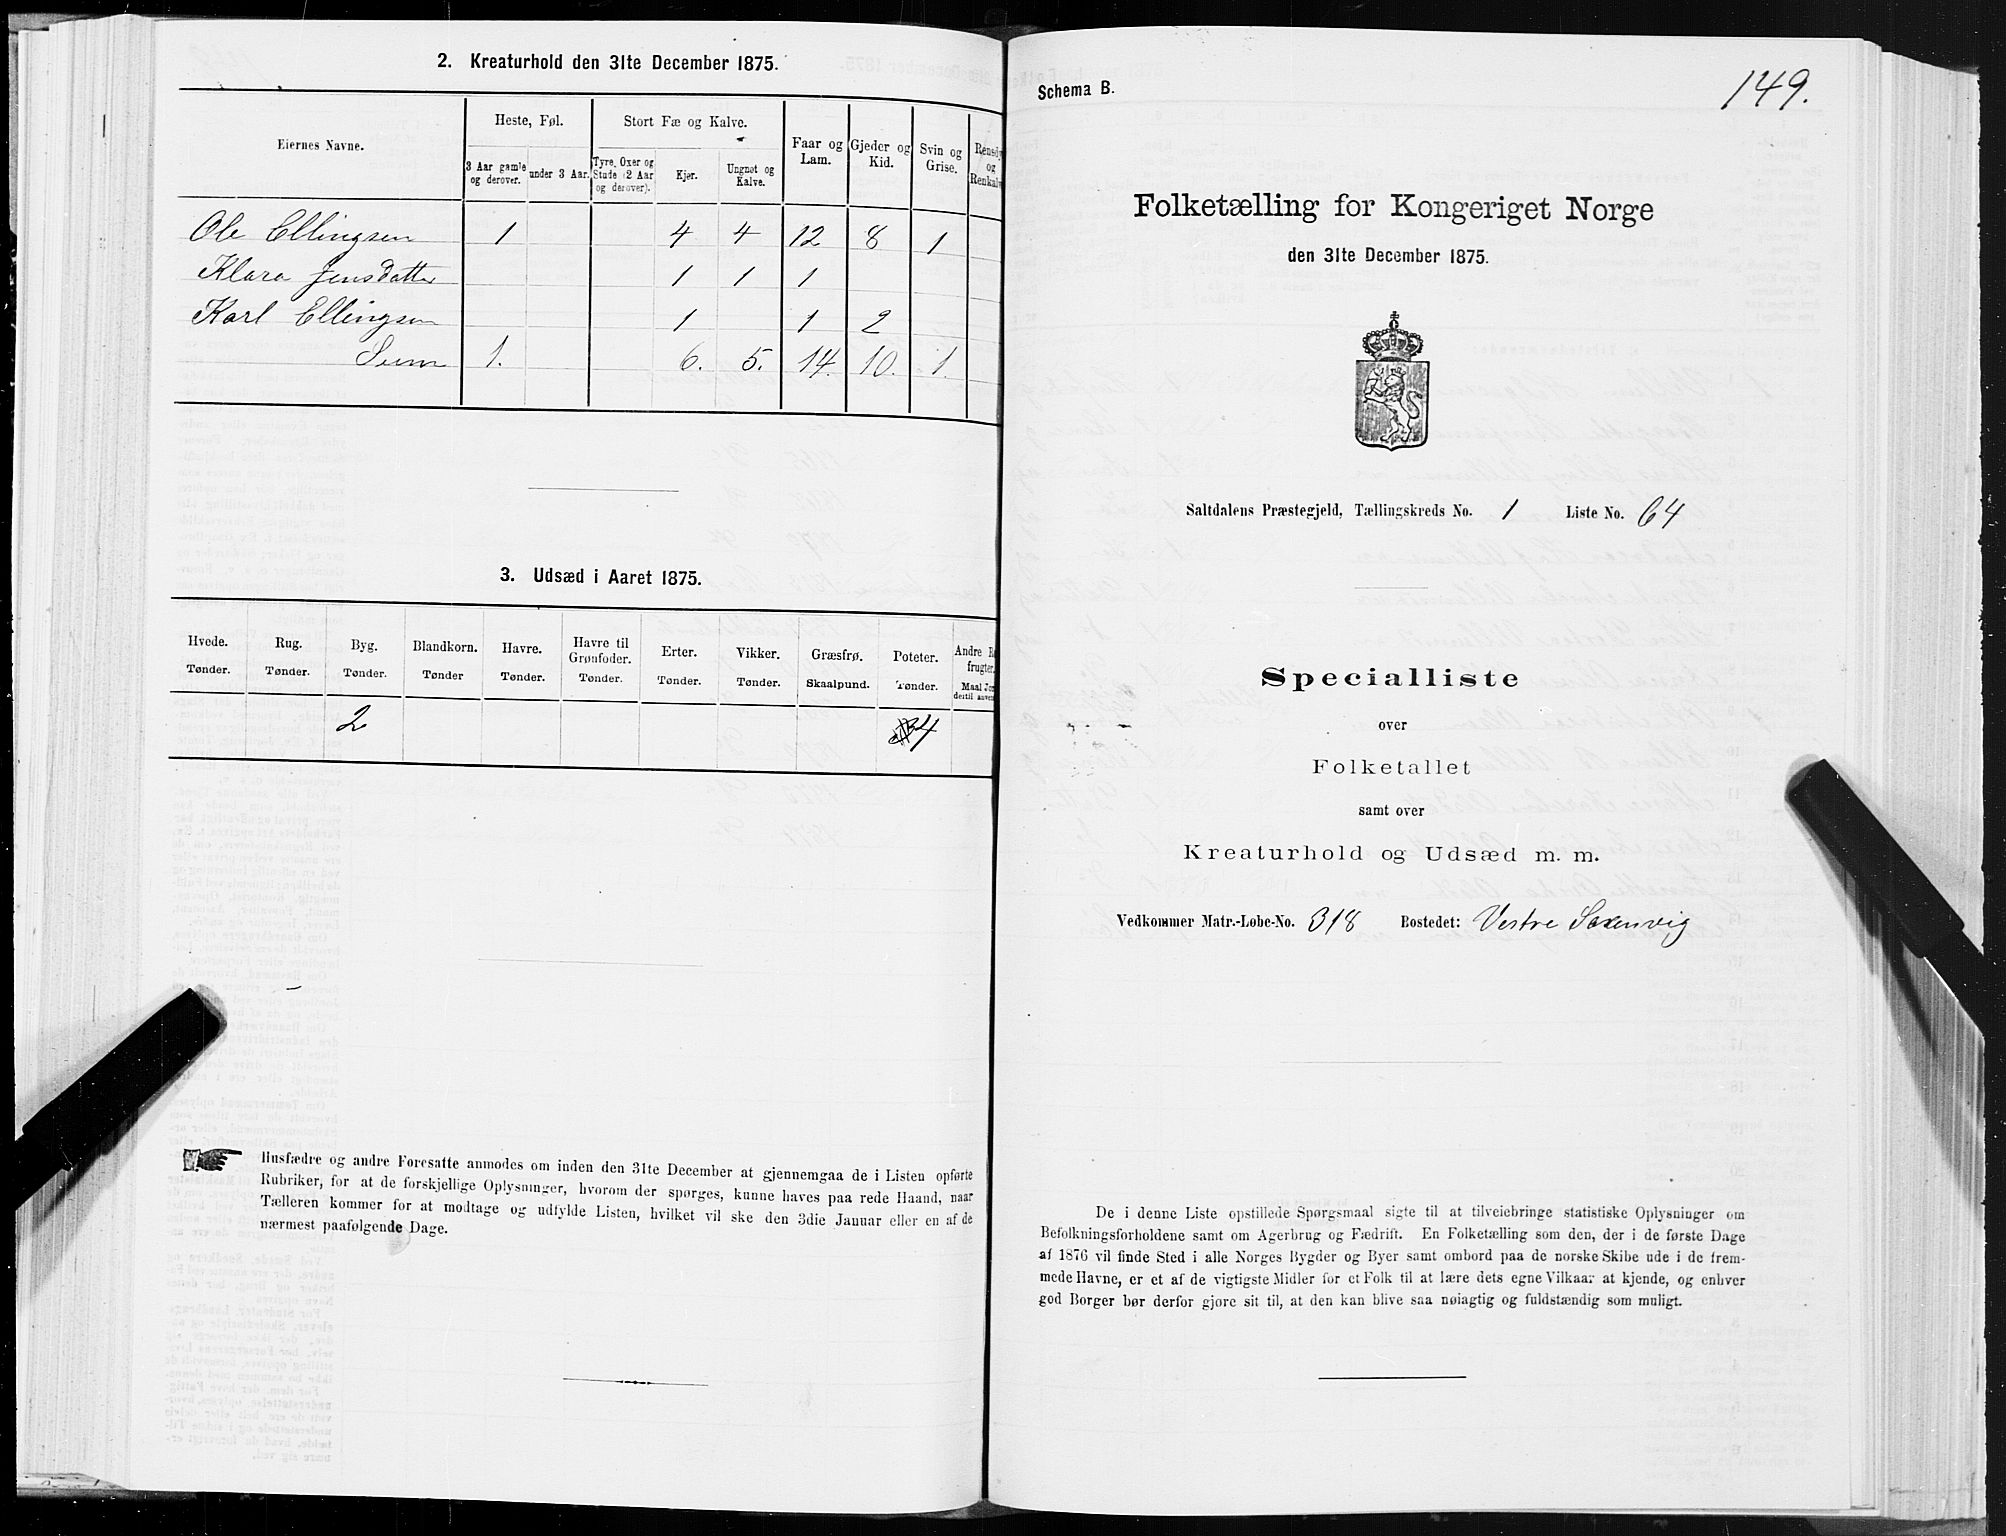 2. Kreaturhold den 31te December 1875.
Eiernes Navne.
Heste, Føl.
Stort Fæ og Kalve.
Faar og Lam.
Gjeder og Kid.
Svin og Grise.
Rensdy
og
Renkalv
3 Aar gamle og derover.
under 3 Aar.
Tyre, Oxer og Stude (2 Aar og derover).
Kjør.
Ungnøt og Kalve.
Ole Ellingsen 1 4 4 12 8 1
Klara Jensdatter 1 1 1
Karl Ellingsen 1 1 2
Sum 1. 6. 5. 14. 10. 1.
3. Udsæd i Aaret 1875.
Hvede. Rug. Byg. Blandkorn. Havre. Havre til Grønfoder. Erter. Vikker. Græsfrø. Poteter. Andre R
frugter
Tønder. Tønder. Tønder. Tønder Tønder. Tønder. Tønder. Tønder. Skaalpund. Tønder. Maal Jor
dertil anven
2 4
Husfædre og andre Foresatte anmodes om inden den 31te December at gjennemgaa de i Listen opførte
Rubriker, for at de forskjellige Oplysninger, hvorom der spørges, kunne haves paa rede Haand, naar
Tælleren kommer for at modtage og udfylde Listen, hvilket vil ske den 3die Januar eller en af de
nærmest paafølgende Dage.
149.
Schema B.
Folketælling for Kongeriget Norge
den 31te December 1875.
Saltdalens Præstegjeld, Tællingskreds No. 1 Liste No. 64
Specialliste
over
Folketallet
samt over
Kreaturhold og Udsæd m. m.
Vedkommer Matr.-Løbe-No. 318 Bostedet: Vestre Saxenvig
De i denne Liste opstillede Spørgsmaal sigte til at tilveiebringe statistiske Oplysninger om
Befolkningsforholdene samt om Agerbrug og Fædrift. En Folketælling som den, der i de første Dage
af 1876 vil finde Sted i alle Norges Bygder og Byer samt ombord paa de norske Skibe ude i de frem-
mede Havne, er et af de vigtigste Midler for et Folk til at lære dets egne Vilkaar at kjende, og enhver
god Borger bør derfor gjøre sit til, at den kan blive saa nøiagtig og fuldstændig som muligt.